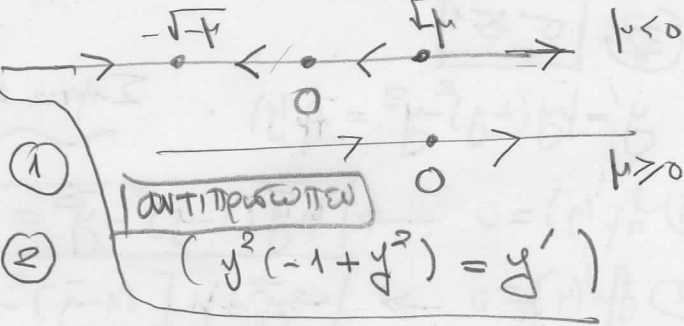 -√-μ √-μ μ<0
0
① 0 μ≥0
αντιπροσωπευ
② (y²(-1+y²) = y')